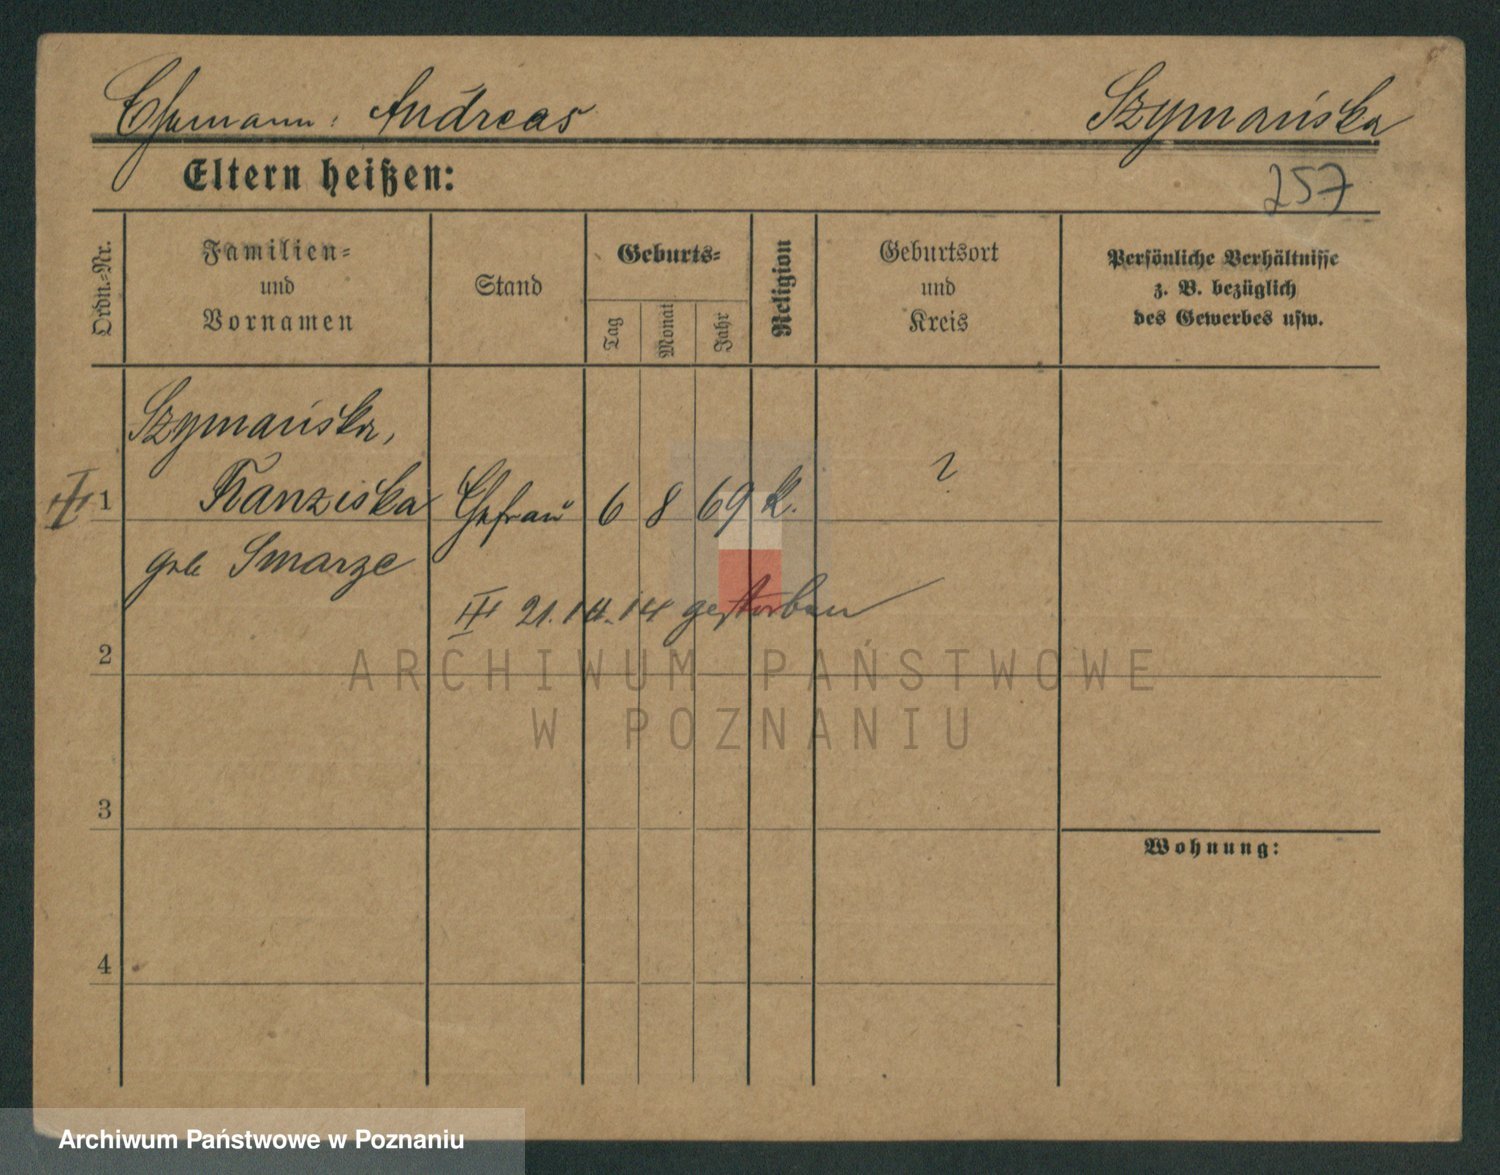 Ehemann: Andreas Szymańska
Eltern heißen:
257
Ordn.-Nr.
Familien-
und
Vornamen
Stand
Geburts-
Tag
Monat
Jahr
Religion
Geburtsort
und
Kreis
Persönliche Verhältnisse
z. B. bezüglich
des Gewerbes usw.
Szymańska,
1 Franziska Ehefrau 6 8 69 K. ?
geb. Smarze
21. 10. 14 gestorben
2
ARCHIWUM PAŃSTWOWE
W POZNANIU
3
Wohnung:
4
Archiwum Państwowe w Poznaniu